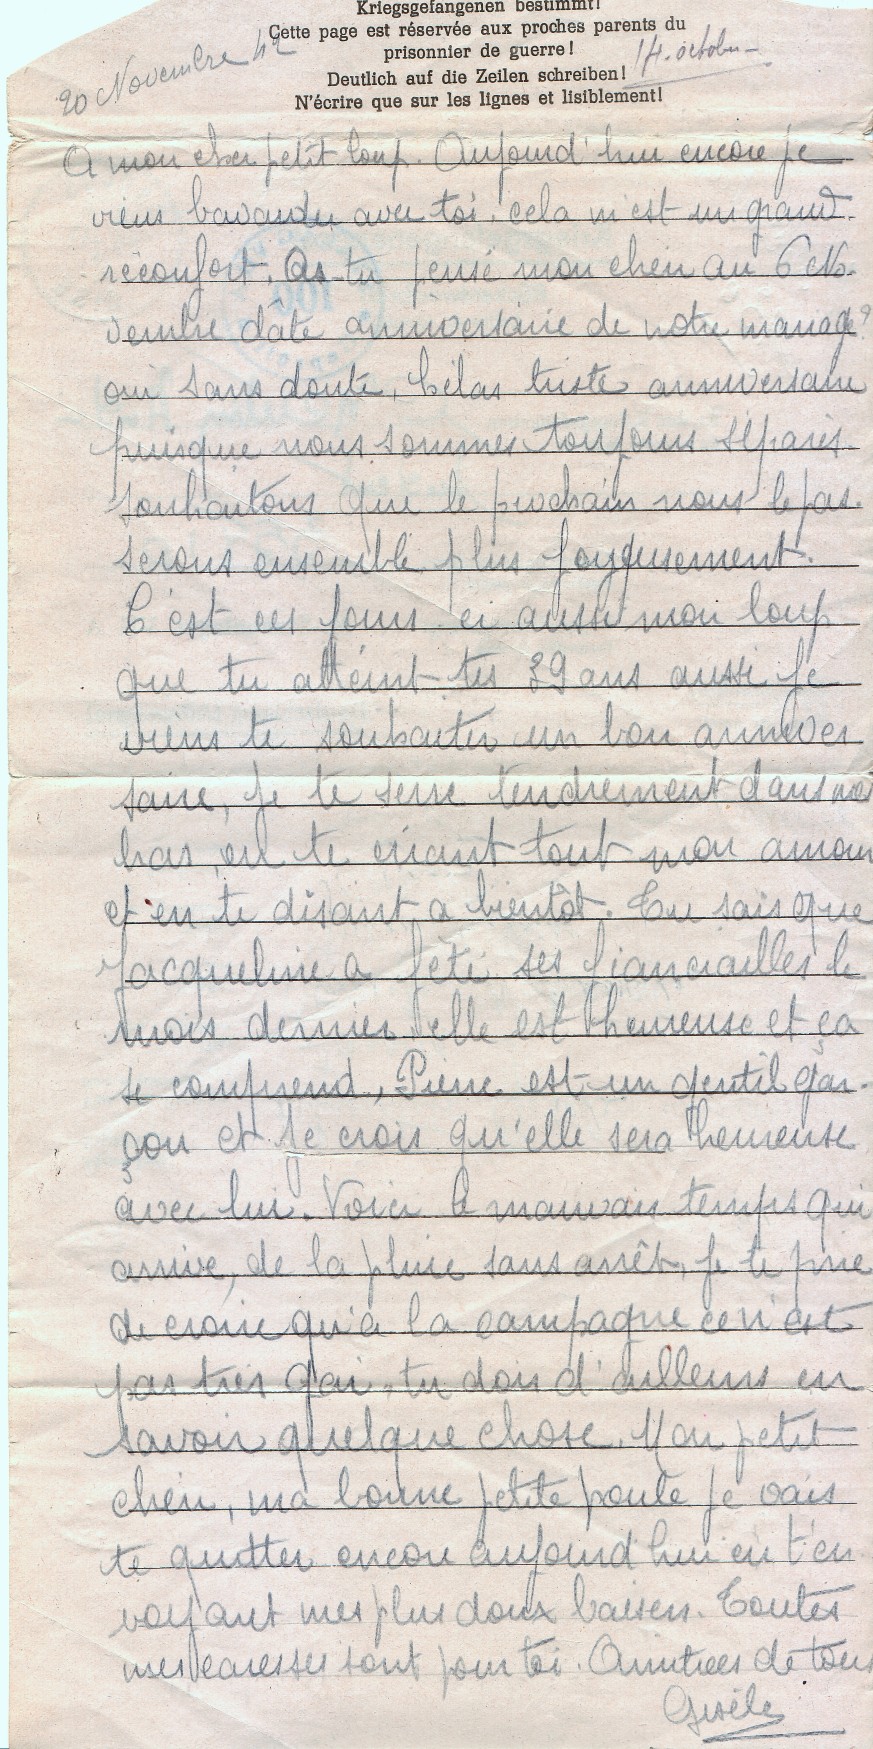 Kriegsgefangenen bestimmt!
Cette page est réservée aux proches parents du
prisonnier de guerre!
Deutlich auf die Zeilen schreiben!
N'écrire que sur les lignes et lisiblement!
20 Novembre 42
14. octobre
A mon cher petit loup. Aujourd'hui encore je
viens bavarder avec toi, cela m'est un grand
réconfort. As-tu pensé mon chéri au 6 
vembre date anniversaire de notre mariage?
oui sans doute, hélas triste anniversaire
puisque nous sommes toujours séparés.
souhaitons que le prochain nous le pas-
serons ensemble plus joyeusement.
C'est ces jours ci aussi mon loup
que tu atteint tes 39 ans aussi je
viens te souhaiter un bon anniver
saire, je te serre tendrement dans mes
bras, en te criant tout mon amour
et en te disant a bientôt. Tu sais que
Jacqueline a fêté ses fiancailles le
mois dernier, elle est heureuse et ça
se comprend, Pierre est un gentil gar-
çon et je crois qu'elle sera heureuse
avec lui. Voici le mauvais temps qui
arrive, de la pluie sans arrêt, je te prie
de croire qu'à la campagne ce n'est
pas très gai, tu dois d'ailleurs en
savoir quelque chose. Mon petit
chéri, ma bonne petite poule je vais
te quitter encore aujourd'hui en t'en
voyant mes plus doux baisers. Toutes
mes caresses sont pour toi. Amitiées de tous
Gisèle